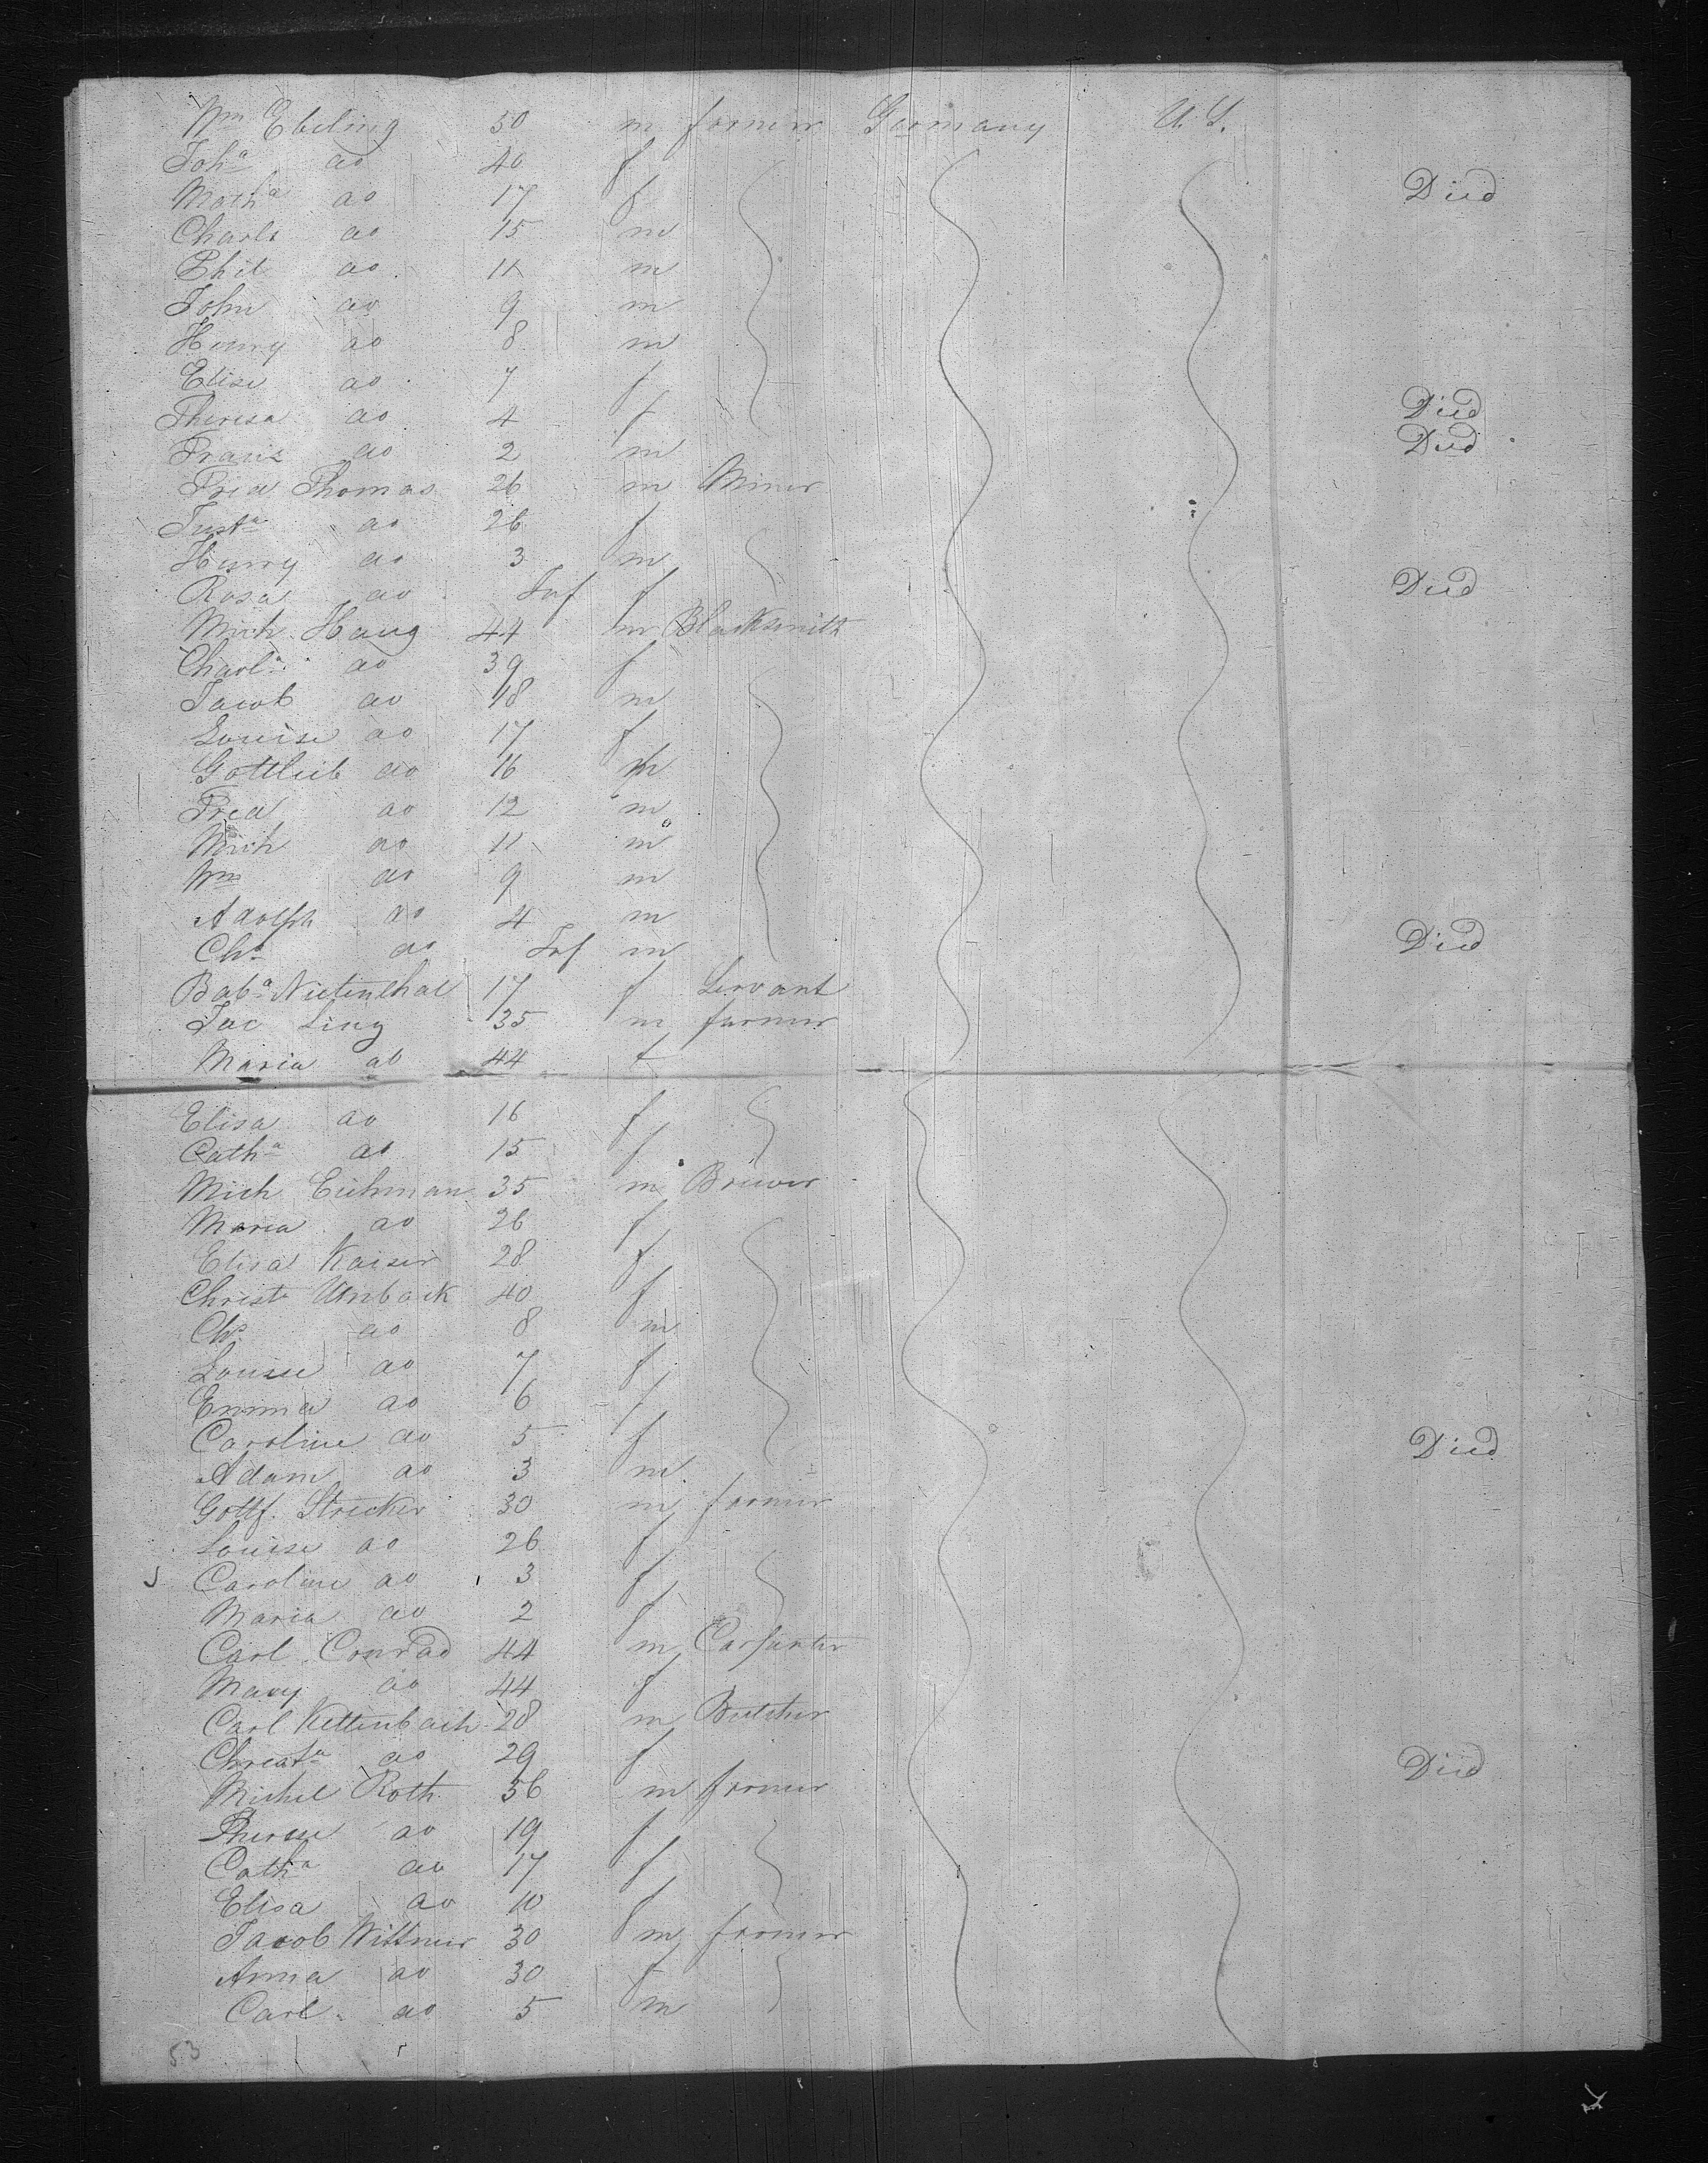 Wm Ebeling 50 m farmer Germany U. S.
Joha do 40 f
Matha do 17 f Died
Charls do 15 m
Phil do 11 m
John do 9 m
Henry do 8 m
Elise do 7 f
Theresa do 4 f Died
Franz do 2 m Died
Fred Thomas 26 m Miner
Justa do 26 f
Henry do 3 m
Rosa do Inf f Died
Mich Haug 44 m Blacksmith
Charla do 39 f
Jacob do 18 m
Louise do 17 f
Gottlieb do 16 m
Fred do 12 m
Mich do 11 m
Wm do 9 m
Adolph do 4 m
Chs do Inf m Died
Baba Nietenthal 17 f Servant
Jac Ling 35 m farmer
Maria do 44 f
Elisa do 16 f
Catha do 15 f
Mich Eichman 35 m Brewer
Maria do 26 f
Elisa Kaiser 28 f
Christe Umback 40 f
Chs do 8 m
Louise do 7 f
Emma do 6 f
Caroline do 5 f Died
Adam do 3 m
Gottf. Strecker 30 m farmer
Louise do 26 f
Caroline do 3 f
Maria do 2 f
Carl Conrad 44 m Carpenter
Mary do 44 f
Carl Kettenbach 28 m Butcher
Christa do 29 f Died
Michel Roth 56 m farmer
Therese do 19 f
Catha do 17 f
Elisa do 10 f
Jacob Wittmer 30 m farmer
Anna do 30 f
Carl do 5 m
53